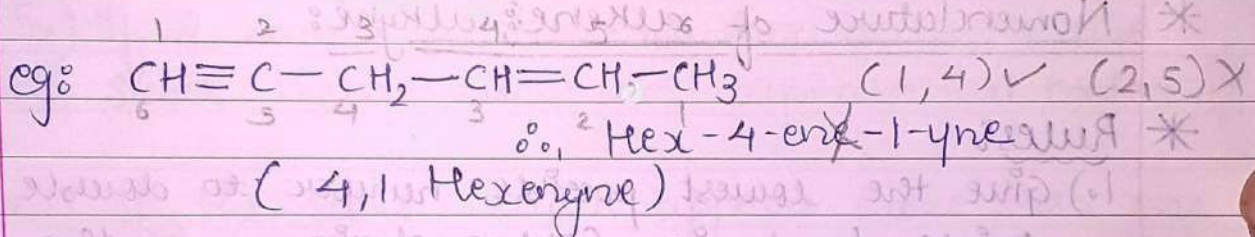 1 2 3 4 5 6
eg: CH≡C-CH₂-CH=CH-CH₃ (1,4)✓ (2,5)X
6 5 4 3 2 1
∴, Hex-4-ene-1-yne
(4,1 Hexenyne)